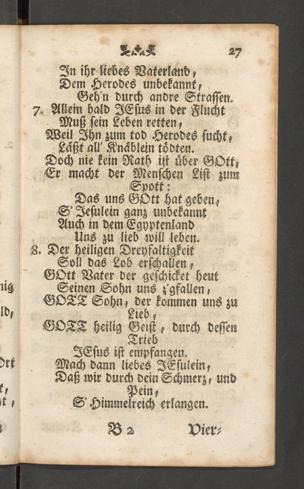 27
In ihr liebes Vaterland,
Dem Herodes unbekannt,
Geh'n durch andre Strassen.
7. Allein bald JEsus in der Flucht
Muß sein Leben retten,
Weil Ihn zum tod Herodes sucht,
Läßt all' Knäblein tödten.
Doch nie kein Rath ist über GOtt,
Er macht der Menschen List zum
Spott:
Das uns GOtt hat geben,
S' Jesulein ganz unbekannt
Auch in dem Egyptenland
Uns zu lieb will leben.
8. Der heiligen Dreyfaltigkeit
Soll das Lob erschallen,
GOtt Vater der geschicket heut
Seinen Sohn uns z'gfallen,
GOTT Sohn, der kommen uns zu
Lieb,
GOTT heilig Geist, durch dessen
Trieb
JEsus ist empfangen.
Mach dann liebes JEsulein,
Daß wir durch dein Schmerz, und
Pein,
S' Himmelreich erlangen.
B 2 Vier-